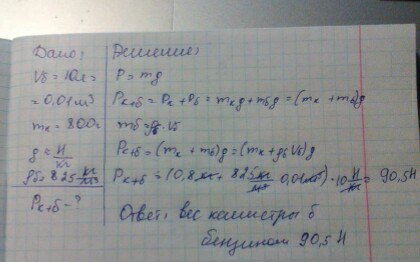 Дано:
Vб = 10л =
= 0,01 м³
mк = 800г
g = Н/кг
ρб = 825 кг/м³
Pк+б - ?
Решение:
P = mg
Pк+б = Pк + Pб = mкg + mбg = (mк + mб)g
mб = ρб · Vб
Pк+б = (mк + mб)g = (mк + ρб Vб)g
Pк+б = (0,8 кг + 825 кг/м³ · 0,01м³) · 10 Н/кг = 90,5 Н
Ответ: вес канистры б
бензином 90,5 Н